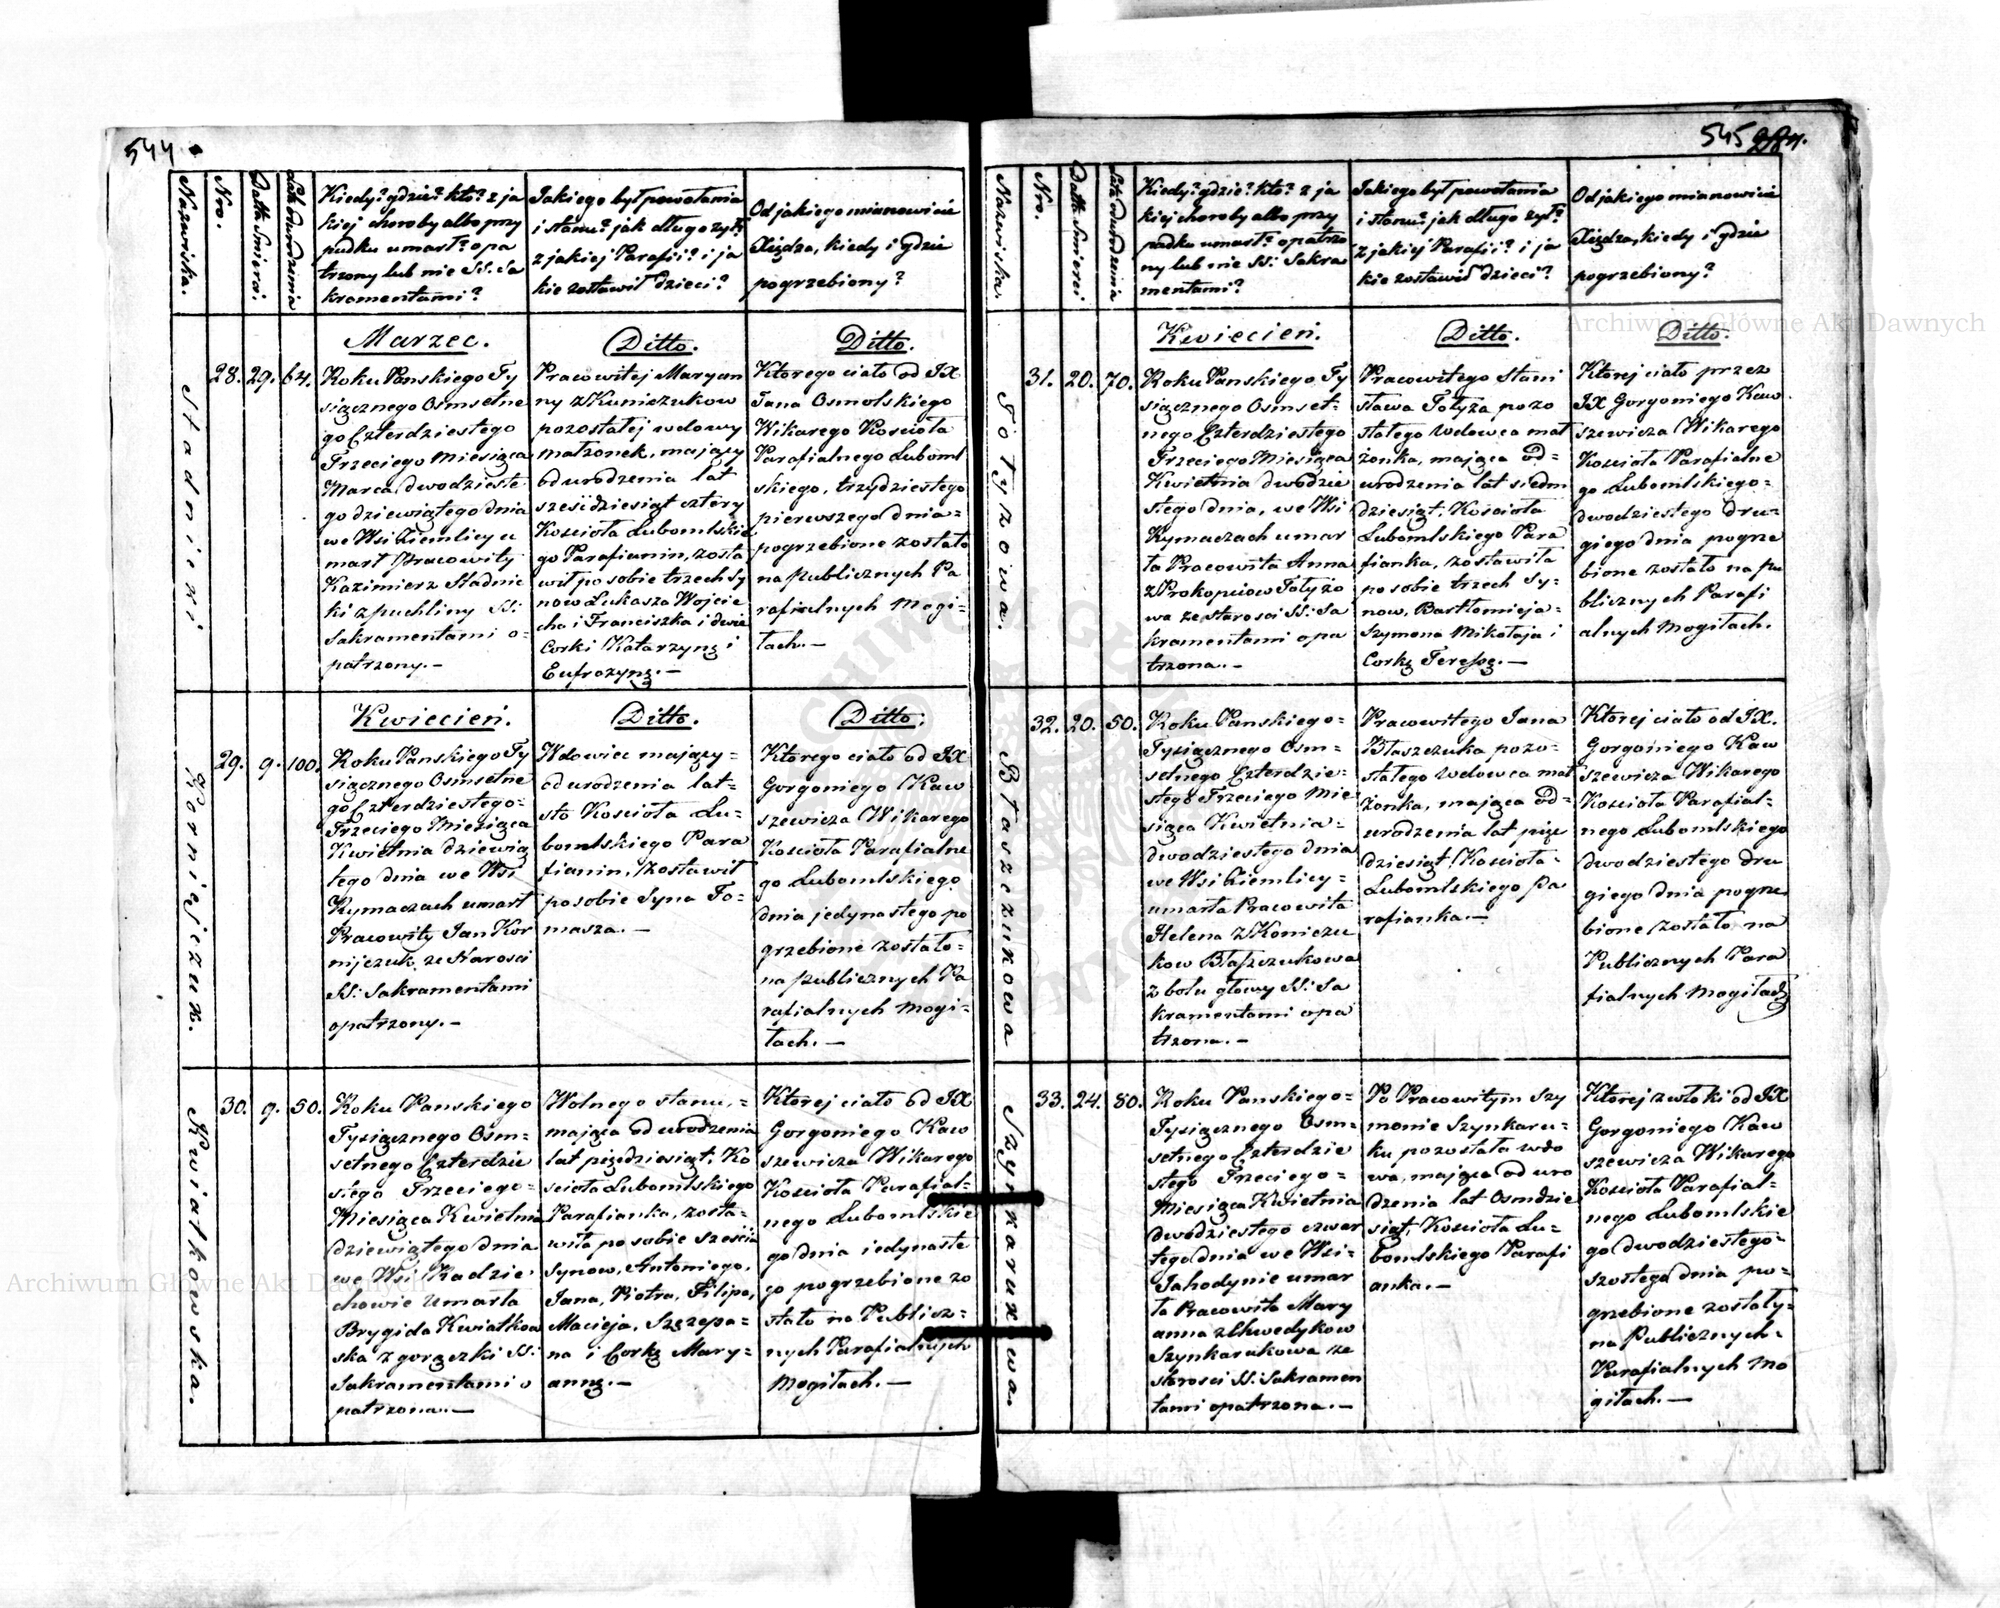 544
Nazwiska.
Nro.
Datta Smierci.
Lata od urodzenia
Kiedy? gdzie? kto? z ja
kiej choroby albo przy
padku umarł? opa
trzony lub nie SS: Sa
kramentami?
Jakiego był powołania
i stanu? jak długo żył?
z jakiej Parafii? i ja
kie zostawił dzieci?
Od jakiego mianowicie
Xiędza, kiedy i gdzie
pogrzebiony?
Stadnicki
28.
29.
64.
Marzec.
Roku Panskiego Ty
siącznego Osmsetne
go Czterdziestego
Trzeciego Miesiąca
Marca, dwodzieste
go dziewiątego dnia
we Wsi Ziemlicy u
marł Pracowity
Kazimierz Stadnic
ki z puchliny SS:
Sakramentami o=
patrzony.—
Ditto.
Pracowitej Maryan
ny z Kuniczukow
pozostałej wdowy
małżonek, mający
od urodzenia lat
sześćdziesiąt cztery
Kościoła Lubomlskie
go Parafianin, zosta
wił po sobie trzech Sy
now Łukasza Wojcie
cha i Franciszka i dwie
Corki Katarzynę i
Eufrozynę.—
Ditto.
Ktorego ciało od JX
Jana Osmolskiego
Wikarego Kościoła
Parafialnego Luboml
skiego, trzydziestego
pierwszego dnia=
pogrzebione zostało
na publicznych Pa
rafialnych Mogi=
łach.—
Kornijczuk.
29.
9.
100.
Kwiecień.
Roku Panskiego Ty
siącznego Osmsetne
go Czterdziestego=
Trzeciego Miesiąca
Kwietnia dziewią
tego dnia we Wsi
Rymaczach umarł
Pracowity Jan Kor
nijczuk ze starosci
SS: Sakramentami
opatrzony.—
Ditto.
Wdowiec mający=
od urodzenia lat=
sto Kościoła Lu=
bomlskiego Para
fianin, Zostawił
po sobie Syna To=
masza.—
Ditto.
Ktorego ciało od JX
Gorgoniego Kaw
szewicza Wikarego
Kościoła Parafialne
go Lubomlskiego
dnia jedynastego po
grzebione zostało=
na publicznych Pa
rafialnych Mogi=
łach.—
Kwiatkowska.
30.
9.
50.
Roku Panskiego
Tysiącznego Osm=
setnego Czterdzie
stego Trzeciego=
Miesiąca Kwietnia
dziewiątego dnia
we Wsi Radzie
chowie Umarła
Brygida Kwiatkow
ska z gorączki SS:
Sakramentami o
patrzona.—
Wolnego stanu,=
mająca od urodzenia
lat pięćdziesiąt, Ko
ścioła Lubomlskiego
Parafianka, zosta=
wiła po sobie sześciu
Synow, Antoniego,
Jana, Piotra, Filipa,
Macieja, Szczepa=
na i Corkę Mary=
annę.—
Ktorej ciało od JX
Gorgoniego Kaw
szewicza Wikarego
Kościoła Parafial=
nego Lubomlskie
go dnia jedynaste
go pogrzebione zo
stało na Publicz=
nych Parafialnych
Mogiłach.—
545
Nazwiska.
Nro.
Datta Smierci
Lata od urodzenia
Kiedy? gdzie? kto? z ja
kiej choroby albo przy
padku umarł? opatrzo
ny lub nie SS: Sakra
mentami?
Jakiego był powołania
i stanu? jak długo żył?
z jakiej Parafii? i ja
kie zostawił dzieci?
Od jakiego mianowicie
Xiędza, kiedy i gdzie
pogrzebiony?
Totyzowa.
31.
20.
70.
Kwiecień.
Roku Panskiego Ty
siącznego Osmset=
nego Czterdziestego
Trzeciego Miesiąca
Kwietnia dwodzie
stego dnia, we Wsi
Rymaczach umar
ła Pracowita Anna
z Prokopciow Totyżo
wa ze starosci SS: Sa
kramentami opa
trzona.—
Ditto.
Pracowitego Stani
sława Totyża pozo
stałego wdowca mał
żonka, mająca od=
urodzenia lat siedm
dziesiąt, Kościoła
Lubomlskiego Para
fianka, zostawiła
po sobie trzech Sy=
now, Bartłomieja=
Szymona Mikołaja i
Corkę Teressę.—
Ditto.
Ktorej ciało przez
JX Gorgoniego Kaw
szewicza Wikarego
Kościoła Parafialne
go Lubomlskiego=
dwodziestego dru=
giego dnia pogrze
bione zostało na pu
blicznych Parafi
alnych Mogiłach.
Błaszczukowa
32.
20.
50.
Roku Panskiego=
Tysiącznego Osm=
setnego Czterdzie=
stego Trzeciego Mie
siąca Kwietnia=
dwodziestego dnia
we Wsi Ziemlicy=
umarła Pracowita
Helena z Koniczu
kow Błaszczukowa
z bolu głowy SS: Sa
kramentami opa
trzona.—
Pracowitego Jana
Błaszczuka pozo=
stałego wdowca mał
żonka, mająca od=
urodzenia lat pięć
dziesiąt, Kościoła=
Lubomlskiego Pa
rafianka.—
Ktorej ciało od JX.
Gorgoniego Kaw
szewicza Wikarego
Kościoła Parafial=
nego Lubomlskiego
dwodziestego dru
giego dnia pogrze
bione zostało na
Publicznych Para
fialnych Mogiłach
Szynkarukowa.
33.
24.
80.
Roku Panskiego=
Tysiącznego Osm=
setnego Czterdzie
stego Trzeciego=
Miesiąca Kwietnia
dwodziestego czwar
tego dnia we Wsi=
Jahodynie umar
ła Pracowita Mary
anna z Chwedykow
Szynkarukowa ze
starosci SS: Sakramen
tami opatrzona.—
Po Pracowitym Szy
monie Szynkaru=
ku pozostała wdo
wa, mająca od uro
dzenia lat Osmdzie
siąt, Kościoła Lu=
bomlskiego Parafi
anka.—
Ktorej zwłoki od JX
Gorgoniego Kaw
szewicza Wikarego
Kościoła Parafial=
nego Lubomlskie
go dwodziestego=
szostego dnia po=
grzebione zostały=
na Publicznych=
Parafialnych Mo
giłach.—
Archiwum Główne Akt Dawnych
Archiwum Główne Akt Dawnych